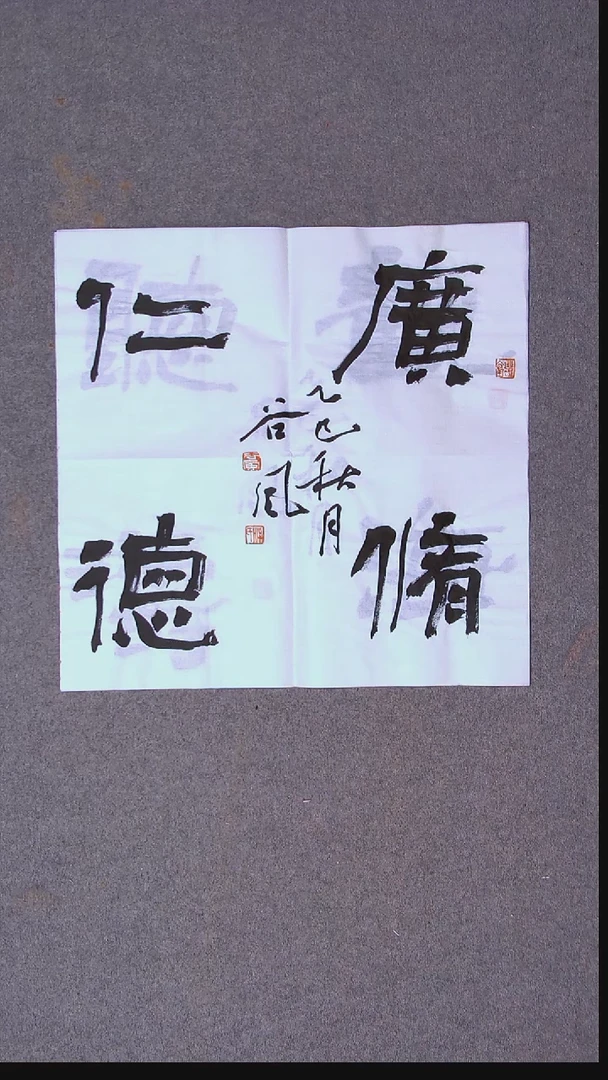 廣脩
仁德
乙巳秋月
谷风